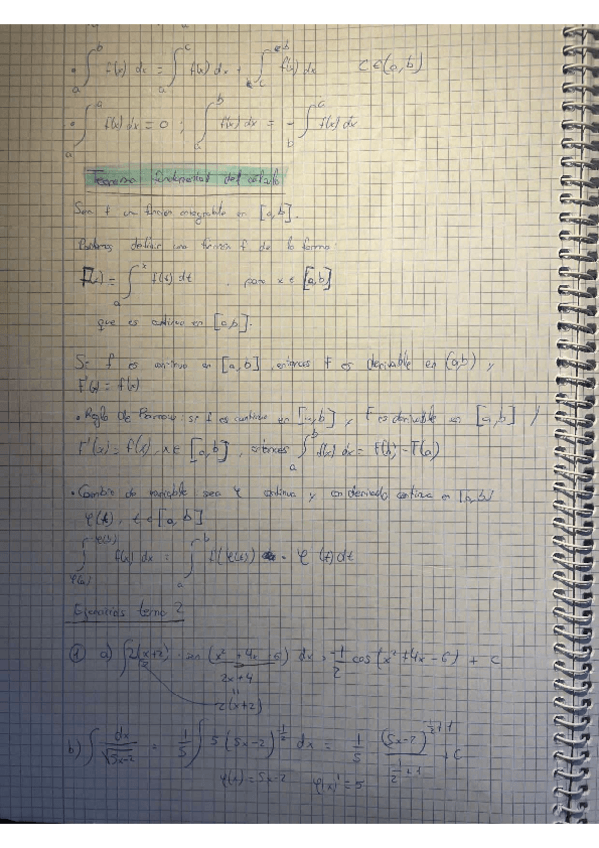 • ∫_a^b f(x) dx = ∫_a^c f(x) dx + ∫_c^b f(x) dx c ∈ (a,b)
• ∫_a^a f(x) dx = 0 ; ∫ f(x) dx = - ∫ f(x) dx
Teorema fundamental del cálculo
Sea f un función integrable en [a,b].
Podemos definir una función F de la forma:
F(x) = ∫_a^x f(t) dt , para x ∈ [a,b]
que es continua en [a,b].
Si f es continua en [a,b], entonces F es derivable en (a,b) y
F'(x) = f(x)
• Regla de Barrow: si f es continua en [a,b], F es derivable en [a,b] /
F'(x) = f(x), x ∈ [a,b], entonces ∫_a^b f(x) dx = F(b) - F(a)
• Cambio de variable sea φ continua y con derivada continua en [a,b]
φ(t), t ∈ [a,b]
∫_φ(a)^φ(b) f(x) dx = ∫_a^b f(φ(t)) · φ'(t) dt
Ejercicios tema 2
① a) ∫ 2(x+2)/2 · sen (x² + 4x - 6) dx = -1/2 cos (x² + 4x - 6) + C
2x+4
=
2(x+2)
b) ∫ dx/√(5x-2) = 1/5 ∫ 5 (5x-2)^(-1/2) dx = 1/5 (5x-2)^(-1/2+1)/(-1/2+1) + C
φ(x) = 5x-2 φ(x)' = 5